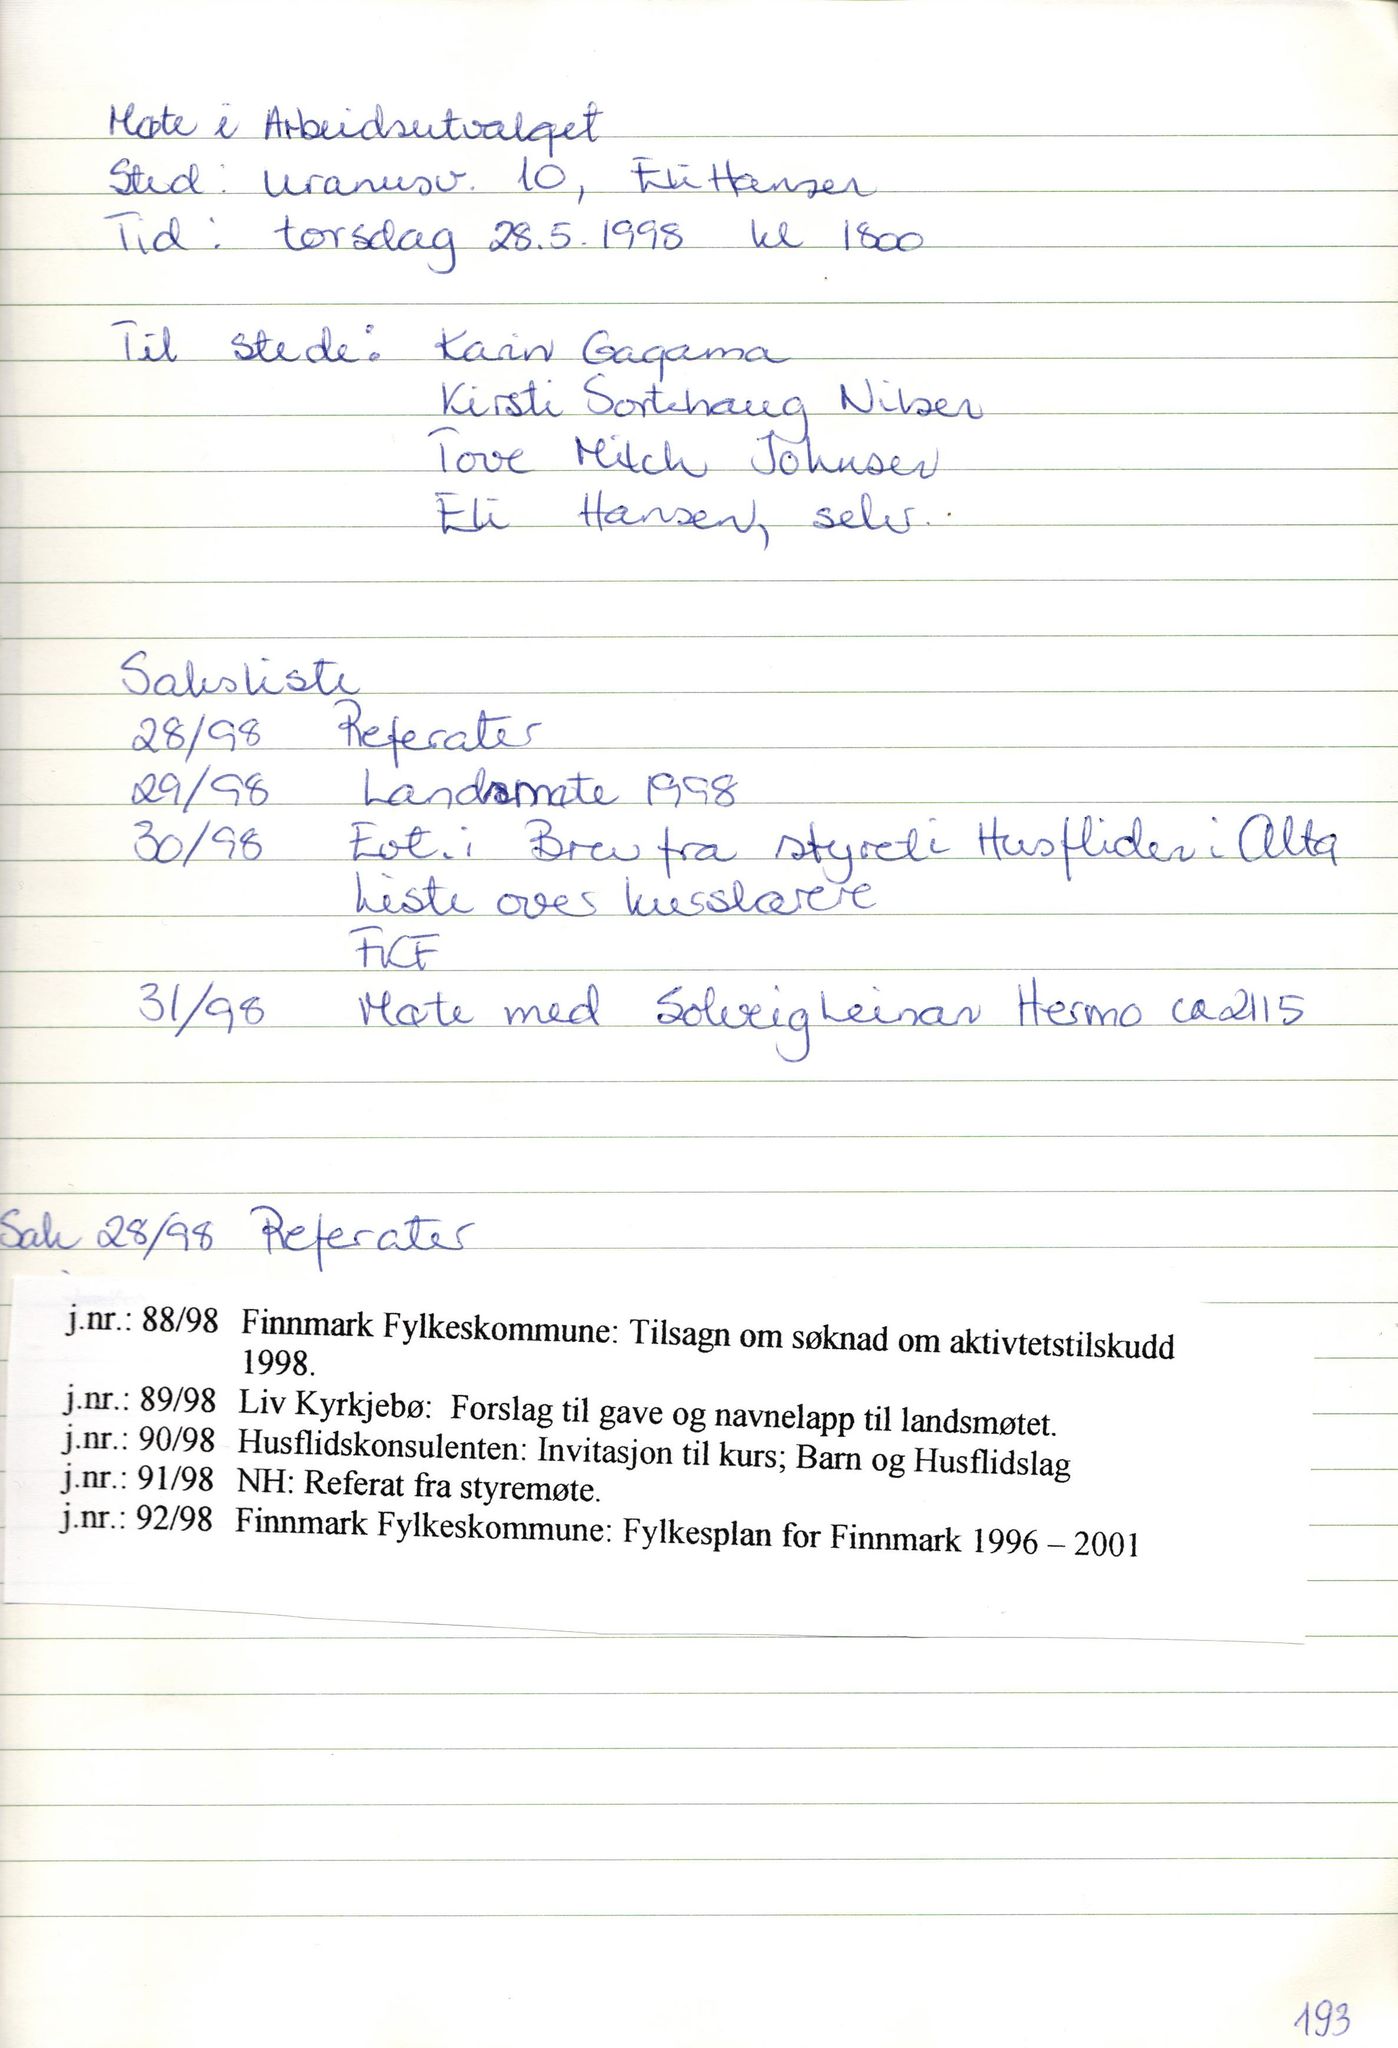 Møte i Arbeidsutvalget
Sted: Uranusv. 10, Eli Hansen
Tid: torsdag 28.5.1998 kl 1800
Til stede: Karin Gagama
Kirsti Sortehaug Nilsen
Tove Mitch Johnsen
Eli Hansen, selv.
Saksliste
28/98 Referater
29/98 Landsmøte 1998
30/98 Evt.: Brev fra styret i Husfliden i Alta
Liste over kurslærere
FKF
31/98 Møte med Solveig Leinan Hermo ca 2115
Sak 28/98 Referater
j.nr.: 88/98 Finnmark Fylkeskommune: Tilsagn om søknad om aktivtetstilskudd
1998.
j.nr.: 89/98 Liv Kyrkjebø: Forslag til gave og navnelapp til landsmøtet.
j.nr.: 90/98 Husflidskonsulenten: Invitasjon til kurs; Barn og Husflidslag
j.nr.: 91/98 NH: Referat fra styremøte.
j.nr.: 92/98 Finnmark Fylkeskommune: Fylkesplan for Finnmark 1996 – 2001
193